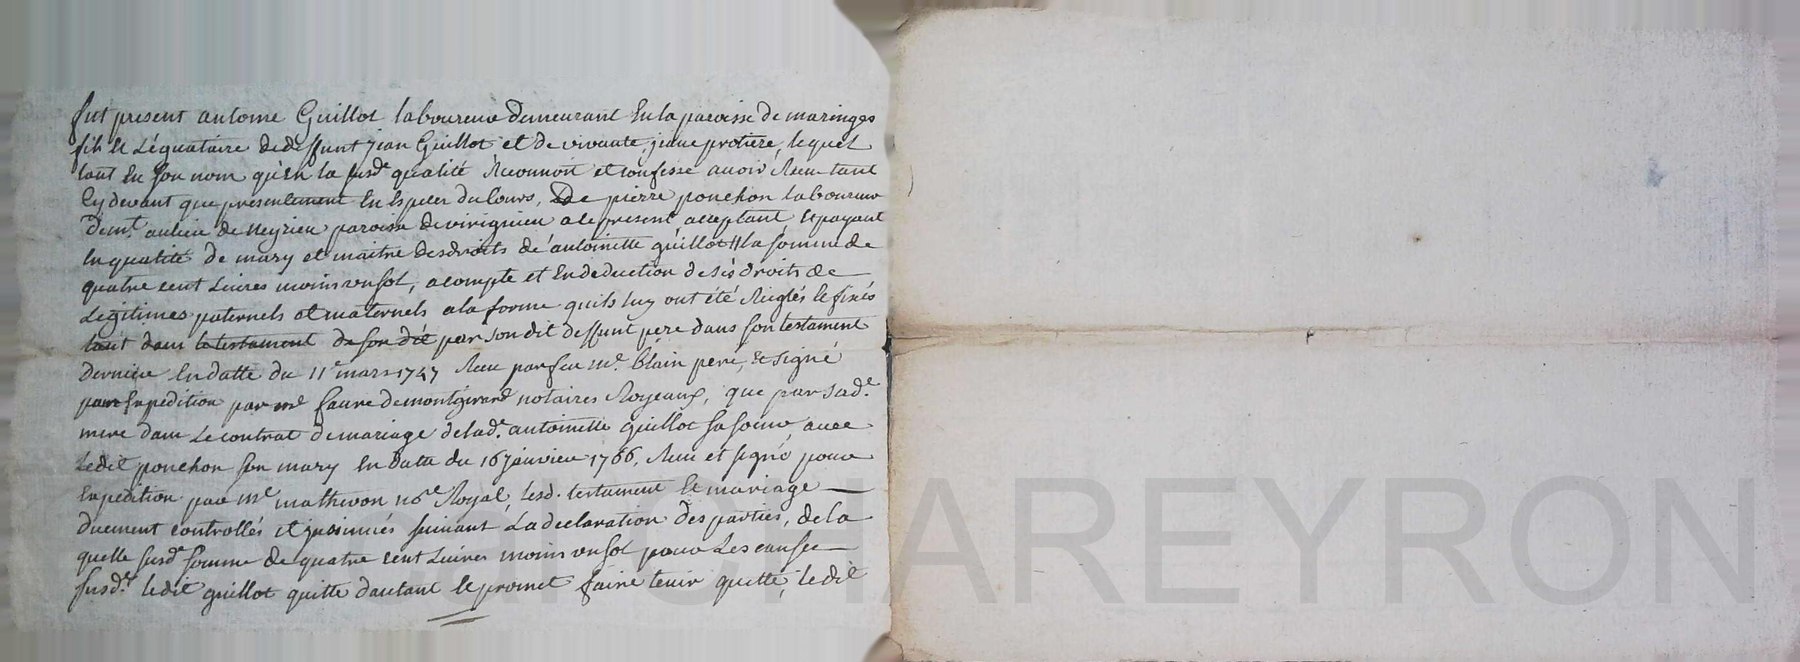 fut present antoine Guillot laboureur demeurant En la paroisse de maringes
fils et Léguataire de deffunt jean Guillot et de vivante jeane protiere, lequel
tant En son nom qu'En la susde qualité Reconnoit et confesse avoir Reçu tant
Cy devant que presentement En Especes du cours, De pierre ponchon laboureur
demt. au lieu de Neyrieu paroisse de virignieu a ce present acceptant Et payant
En qualité de mary et maitre des droits de antoinette guillot la somme de
quatre cent Livres moins un sol, a compte et En deduction de ses droits de
Légitimes paternels et maternels a la forme qu'ils luy ont été Reiglés Et fixés
tant dans le testament de son dit par son dit deffunt pere dans son testament
dernier En datte du 11e mars 1747 Reçu par feu me. Blain pere, Et signé
pour Expedition par me faure de montgirard notaires Royeaux, que par sade.
mere dans Le contrat de mariage de lade. antoinette guillot sa soeur avec
Ledit ponchon son mary En datte du 16 janvier 1766, Reçu et signé pour
Expedition par me mathevon nore Royal, lesd. testament Et mariage
duement controllés Et jnsinués suivant La declaration des parties, de la
quelle susde somme de quatre cent Livres moins un sol pour Les causes
susdes. ledit guillot quitte d'autant Et promet faire tenir quitte, ledit
CHAREYRON